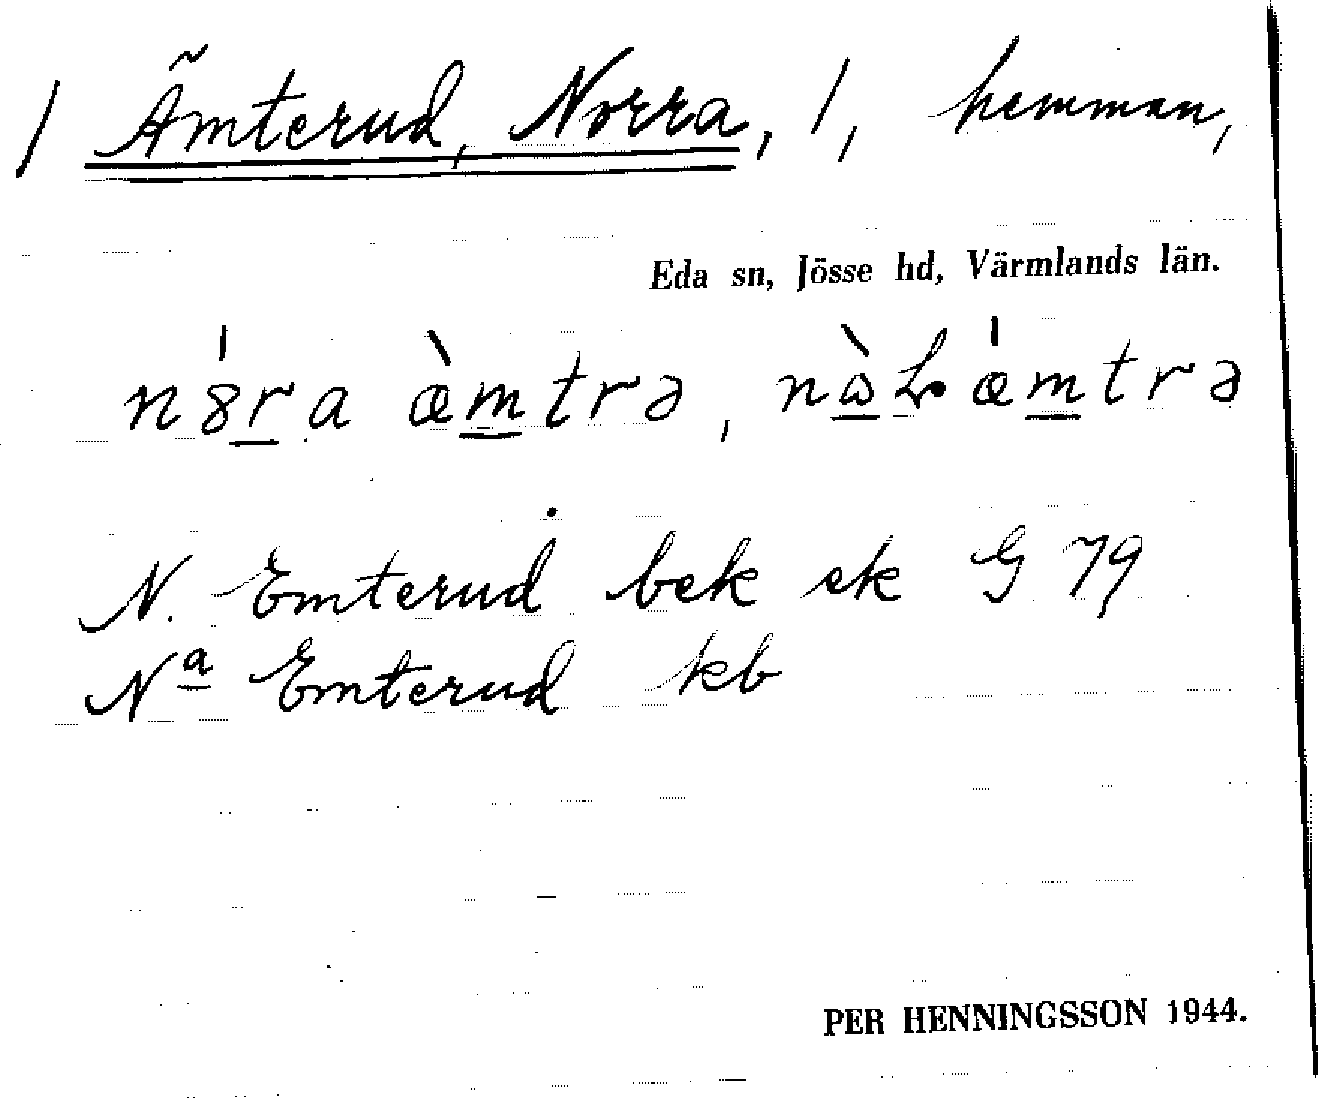 / Ämterud, Norra, /, hemman,
Eda sn, Jösse hd, Värmlands län.
n8́r̲a æ̀m̲trə, nὼ̲Ɫǽm̲trə
N. Emterud bek ek G 79
Nª Emterud kb
PER HENNINGSSON 1944.